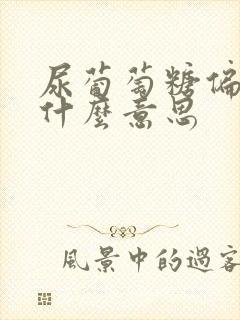 尿葡萄糖偏
什麼意思
風景中的過客